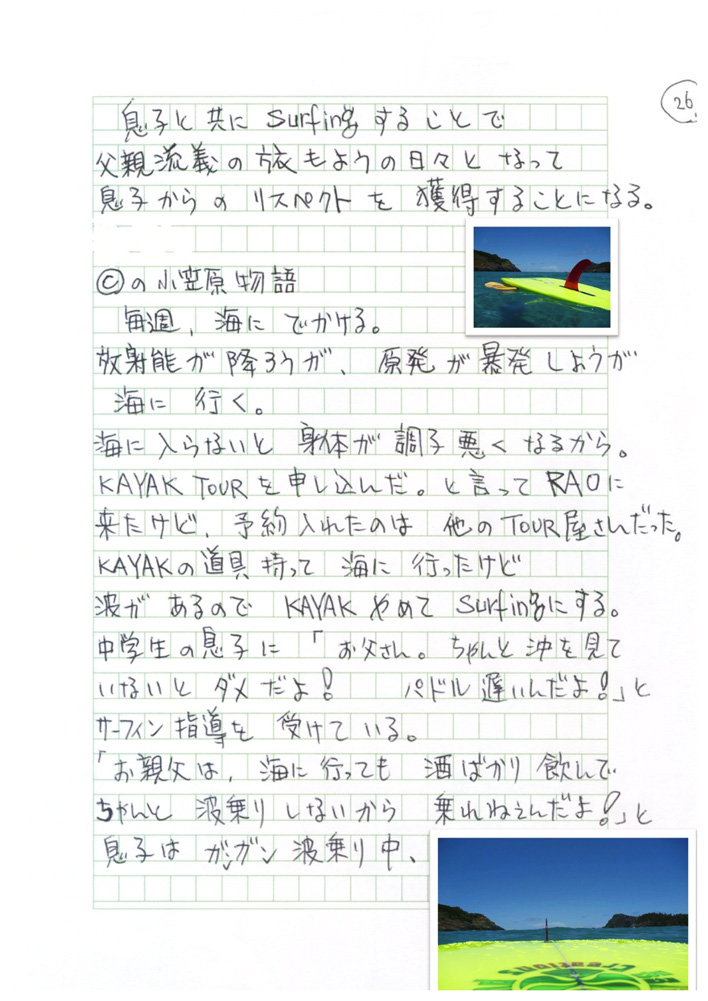 26
息子と共に Surfing することで
父親流義の旅もようの日々となって
息子からのリスペクトを獲得することになる。
©の小笠原物語
毎週、海にでかける。
放射能が降ろうが、原発が暴発しようが
海に行く。
海に入らないと身体が調子悪くなるから。
KAYAK TOURを申し込んだ。と言ってRAOに
来たけど、予約入れたのは他のTOUR屋さんだった。
KAYAKの道具持って海に行ったけど
波があるのでKAYAKやめてSurfingにする。
中学生の息子に「お父さん。ちゃんと沖を見て
いないとダメだよ！ パドル遅いんだよ！」と
サーフィン指導を受けている。
「お親父は、海に行っても酒ばかり飲んで
ちゃんと波乗りしないから乗れねえんだよ！」と
息子はガンガン波乗り中、